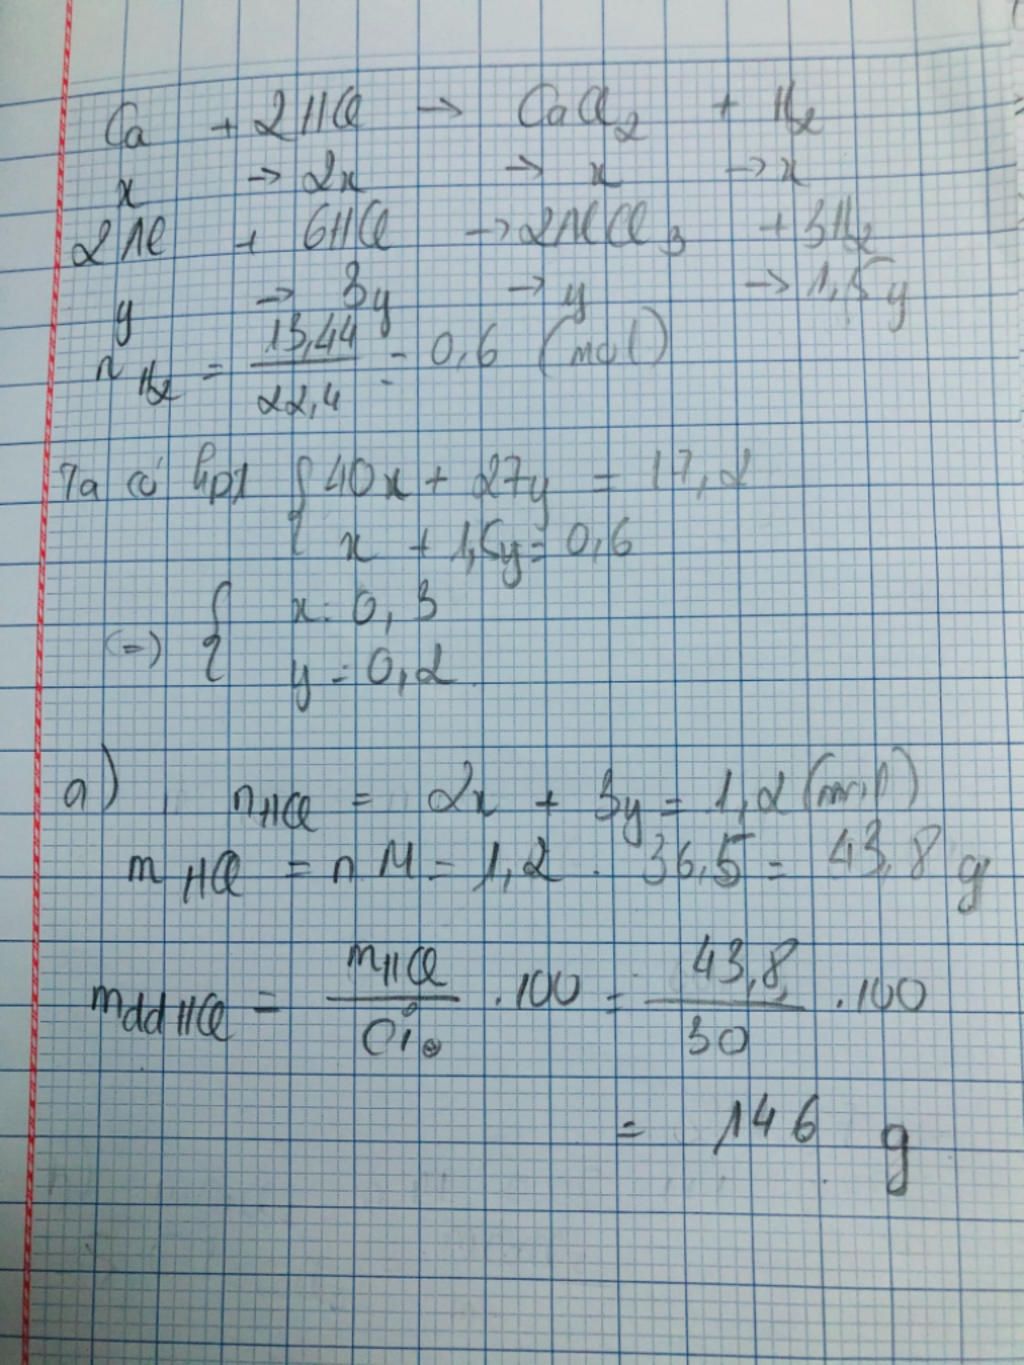 Ca + 2HCl → CaCl2 + H2
x → 2x → x → x
2Al + 6HCl → 2AlCl3 + 3H2
y → 3y → y → 1,5y
nH2 = 13,44/22,4 = 0,6 (mol)
Ta có hpt { 40x + 27y = 17,2
x + 1,5y = 0,6
(=) { x = 0,3
y = 0,2
a) nHCl = 2x + 3y = 1,2 (mol)
mHCl = n.M = 1,2 . 36,5 = 43,8 g
mddHCl = mHCl/C% .100 = 43,8/30 .100
= 146 g